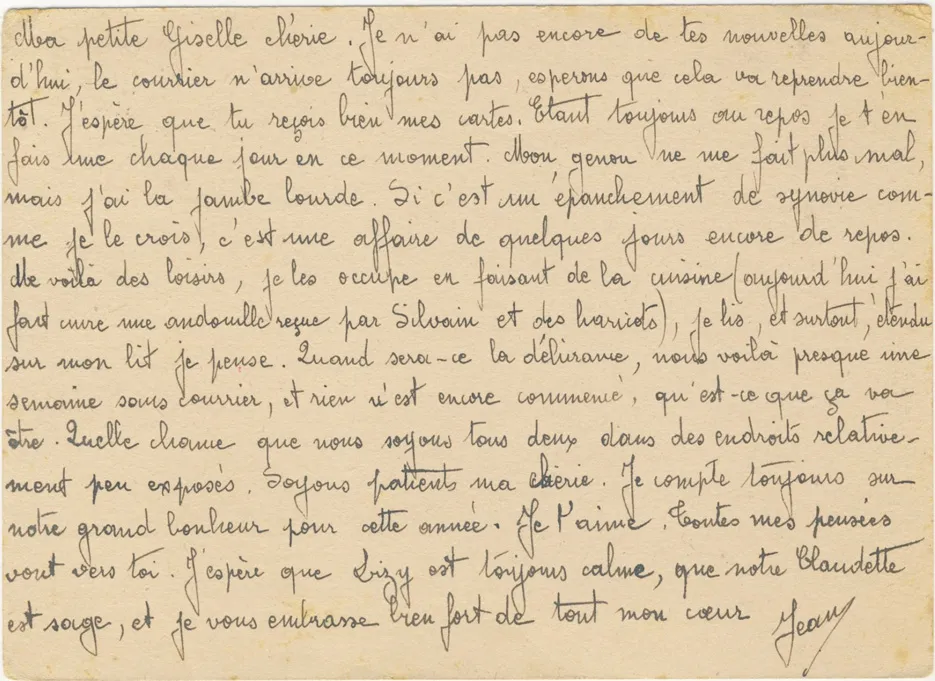 Ma petite Giselle chérie. Je n'ai pas encore de tes nouvelles aujour-
d'hui, le courrier n'arrive toujours pas, esperons que cela va reprendre bien-
tôt. J'espère que tu reçois bien mes cartes. Etant toujours au repos je t'en
fais une chaque jour en ce moment. Mon genou ne me fait plus mal,
mais j'ai la jambe lourde. Si c'est un épanchement de synovie com-
me je le crois, c'est une affaire de quelques jours encore de repos.
Me voilà des loisirs, je les occupe en faisant de la cuisine (aujourd'hui j'ai
fait cuire une andouille reçue par Silvain et des haricots), je lis, et surtout, étendu
sur mon lit je pense. Quand sera-ce la délivrance, nous voilà presque une
semaine sans courrier, et rien n'est encore commencé, qu'est-ce que ça va
être. Quelle chance que nous soyons tous deux dans des endroits relative-
ment peu exposés. Soyons patients ma chérie. Je compte toujours sur
notre grand bonheur pour cette année. Je t'aime. Toutes mes pensées
vont vers toi. J'espère que Lizy est toujours calme, que notre Claudette
est sage, et je vous embrasse bien fort de tout mon cœur Jean